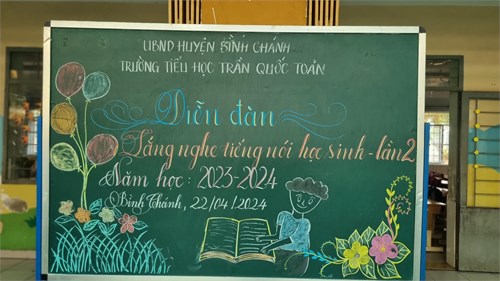 UBND HUYỆN BÌNH CHÁNH
TRƯỜNG TIỂU HỌC TRẦN QUỐC TOẢN
Diễn đàn
Lắng nghe tiếng nói học sinh - lần 2
Năm học : 2023-2024
Bình Chánh, 22/04/2024